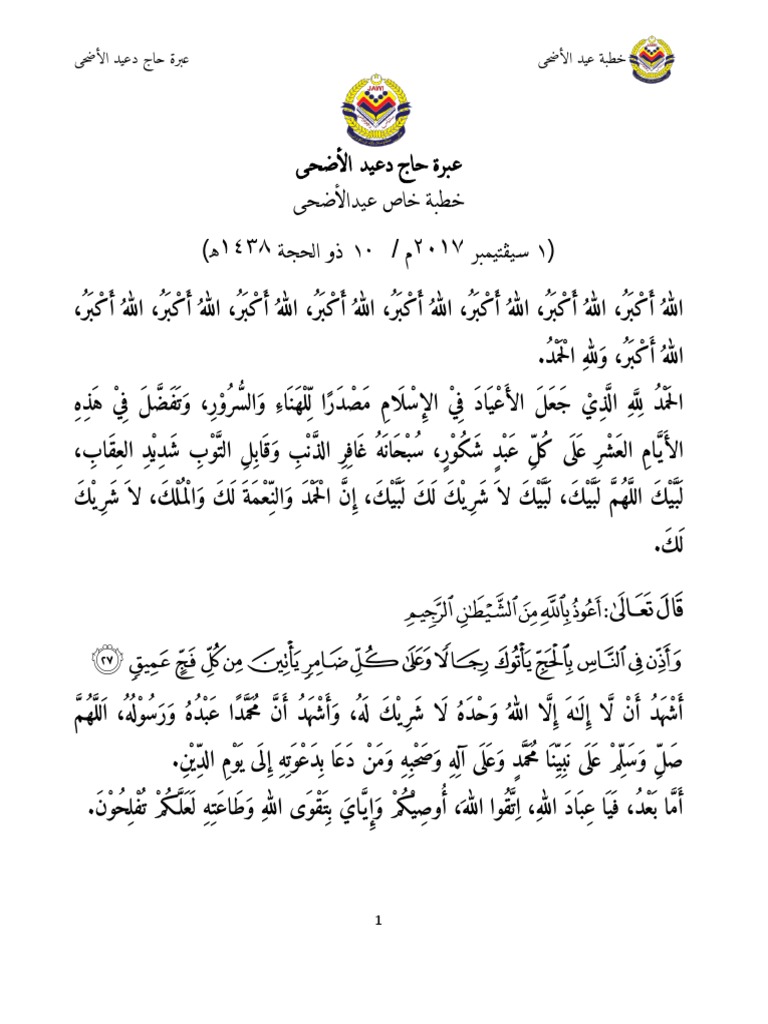 خطبة عيد الأضحى
عبرة حاج دعيد الأضحى
JAWI
عبرة حاج دعيد الأضحى
خطبة خاص عيدالأضحى
(١ سيڤتيمبر ٢٠١٧م / ١٠ ذو الحجة ١٤٣٨هـ)
اللهُ أَكْبَرُ، اللهُ أَكْبَرُ، اللهُ أَكْبَرُ، اللهُ أَكْبَرُ، اللهُ أَكْبَرُ، اللهُ أَكْبَرُ، اللهُ أَكْبَرُ، اللهُ أَكْبَرُ،
اللهُ أَكْبَرُ، وَللهِ الْحَمْدُ.
الحَمْدُ لِلَّهِ الَّذِيْ جَعَلَ الأَعْيَادَ فِيْ الإِسْلَامِ مَصْدَرًا لِّلْهَنَاءِ وَالسُّرُوْرِ، وَتَفَضَّلَ فِيْ هَذِهِ
الأَيَّامِ العَشْرِ عَلَى كُلِّ عَبْدٍ شَكُوْرٍ، سُبْحَانَهُ غَافِرِ الذَّنْبِ وَقَابِلِ التَّوْبِ شَدِيْدِ العِقَابِ،
لَبَّيْكَ اللَّهُمَّ لَبَّيْكَ، لَبَّيْكَ لاَ شَرِيْكَ لَكَ لَبَّيْكَ، إِنَّ الْحَمْدَ وَالنِّعْمَةَ لَكَ وَالْمُلْكَ، لاَ شَرِيْكَ
لَكَ.
قَالَ تَعَالَىٰ: أَعُوذُ بِٱللَّهِ مِنَ ٱلشَّيْطَٰنِ ٱلرَّجِيمِ
وَأَذِّن فِى ٱلنَّاسِ بِٱلْحَجِّ يَأْتُوكَ رِجَالًا وَعَلَىٰ كُلِّ ضَامِرٍ يَأْتِينَ مِن كُلِّ فَجٍّ عَمِيقٍ ٢٧
أَشْهَدُ أَنْ لَّا إِلَـٰهَ إِلَّا اللهُ وَحْدَهُ لَا شَرِيْكَ لَهُ، وَأَشْهَدُ أَنَّ مُحَمَّدًا عَبْدُهُ وَرَسُوْلُهُ، اَللَّهُمَّ
صَلِّ وَسَلِّمْ عَلَى نَبِيِّنَا مُحَمَّدٍ وَعَلَى آلِهِ وَصَحْبِهِ وَمَنْ دَعَا بِدَعْوَتِهِ إِلَى يَوْمِ الدِّيْنِ.
أَمَّا بَعْدُ، فَيَا عِبَادَ اللهِ، اِتَّقُوا اللهَ، أُوصِيْكُمْ وَإِيَّايَ بِتَقْوَى اللهِ وَطَاعَتِهِ لَعَلَّكُمْ تُفْلِحُوْنَ.
1